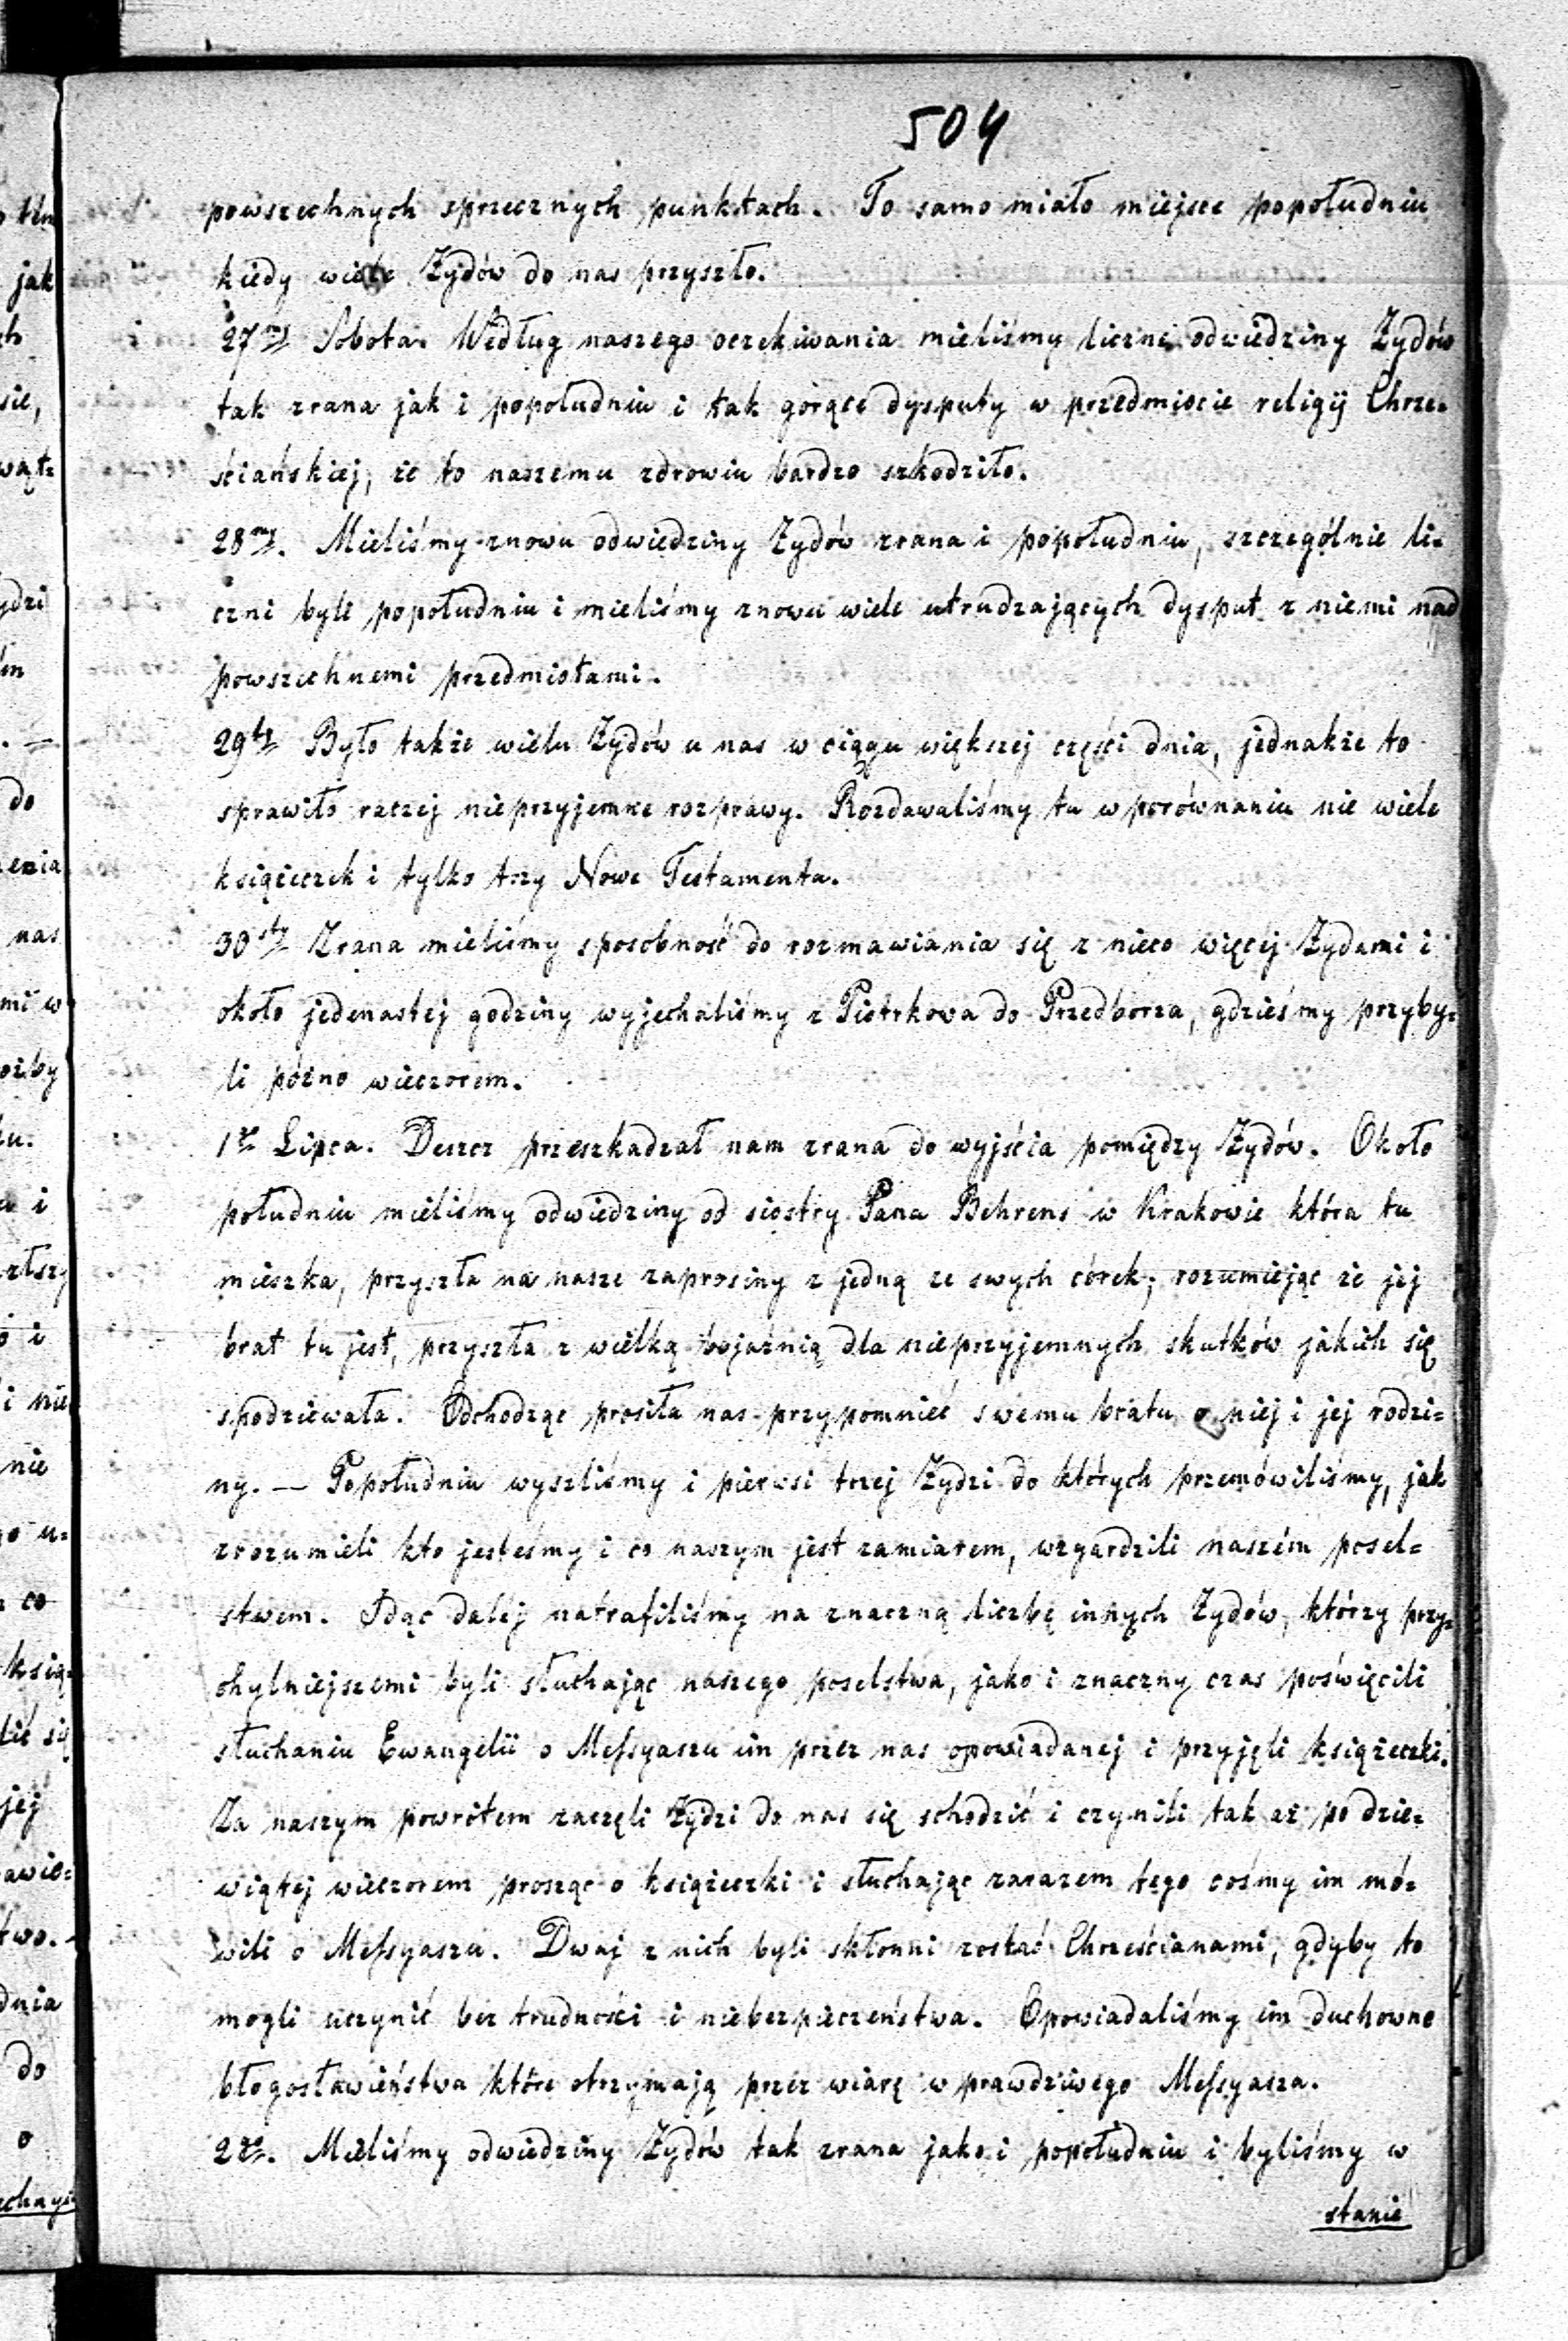 504
powszechnych sprzecznych punktach. To samo miało miejsce popołudniu
kiedy wiele Żydów do nas przyszło.
27my Sobota. Według naszego oczekiwania mieliśmy liczne odwiedziny Żydów
tak zrana jak i popołudniu i tak gorące dysputy w przedmiocie religij Chrze-
ściańskiej, że to naszemu zdrowiu bardzo szkodziło.
28my. Mieliśmy znowu odwiedziny Żydów zrana i popołudniu, szczególnie li-
czni byli popołudniu i mieliśmy znowu wiele utrudzających dysput z niemi nad
powszechnemi przedmiotami.
29ty Było także wielu Żydów u nas w ciągu większej części dnia, jednakże to
sprawiło raczej nieprzyjemne rozprawy. Rozdawaliśmy tu w porównaniu nie wiele
książeczek i tylko trzy Nowe Testamenta.
30sty Zrana mieliśmy sposobność do rozmawiania się z nieco więcej Żydami i
około jedenastej godziny wyjechaliśmy z Piotrkowa do Przedborza, gdzieśmy przyby-
li późno wieczorem.
1go Lipca. Deszcz przeszkadzał nam zrana do wyjścia pomiędzy Żydów. Około
południu mieliśmy odwiedziny od siostry Pana Behrens w Krakowie która tu
mieszka, przyszła na nasze zaprosiny z jedną ze swych córek; rozumiejąc że jej
brat tu jest, przyszła z wielką bojaźnią dla nieprzyjemnych skutków jakich się
spodziewała. Odchodząc prosiła nas przypomnieć swemu bratu o niej i jej rodzi-
ny. — Popołudniu wyszliśmy i pierwsi trzej Żydzi do których przemówiliśmy, jak
zrozumieli kto jesteśmy i co naszym jest zamiarem, wzgardzili naszém posel-
stwem. Idąc dalej natrafiliśmy na znaczną liczbę innych Żydów, którzy przy-
chylniejszemi byli słuchając naszego poselstwa, jako i znaczny czas poświęcili
słuchaniu Ewangelii o Messyaszu im przez nas opowiadanej i przyjęli książeczki.
Za naszym powrótem zaczęli Żydzi do nas się schodzić i czynili tak aż po dzie-
wiątej wieczorem prosząc o książeczki i słuchając zarazem tego cośmy im mó-
wili o Messyaszu. Dwaj z nich byli skłonni zostać Chrześcianami, gdyby to
mogli uczynić bez trudności i niebezpieczeństwa. Opowiadaliśmy im duchowne
błogosławieństwa które otrzymają przez wiarę w prawdziwego Messyasza.
2go. Mieliśmy odwiedziny Żydów tak zrana jako i popołudniu i byliśmy w
stanie